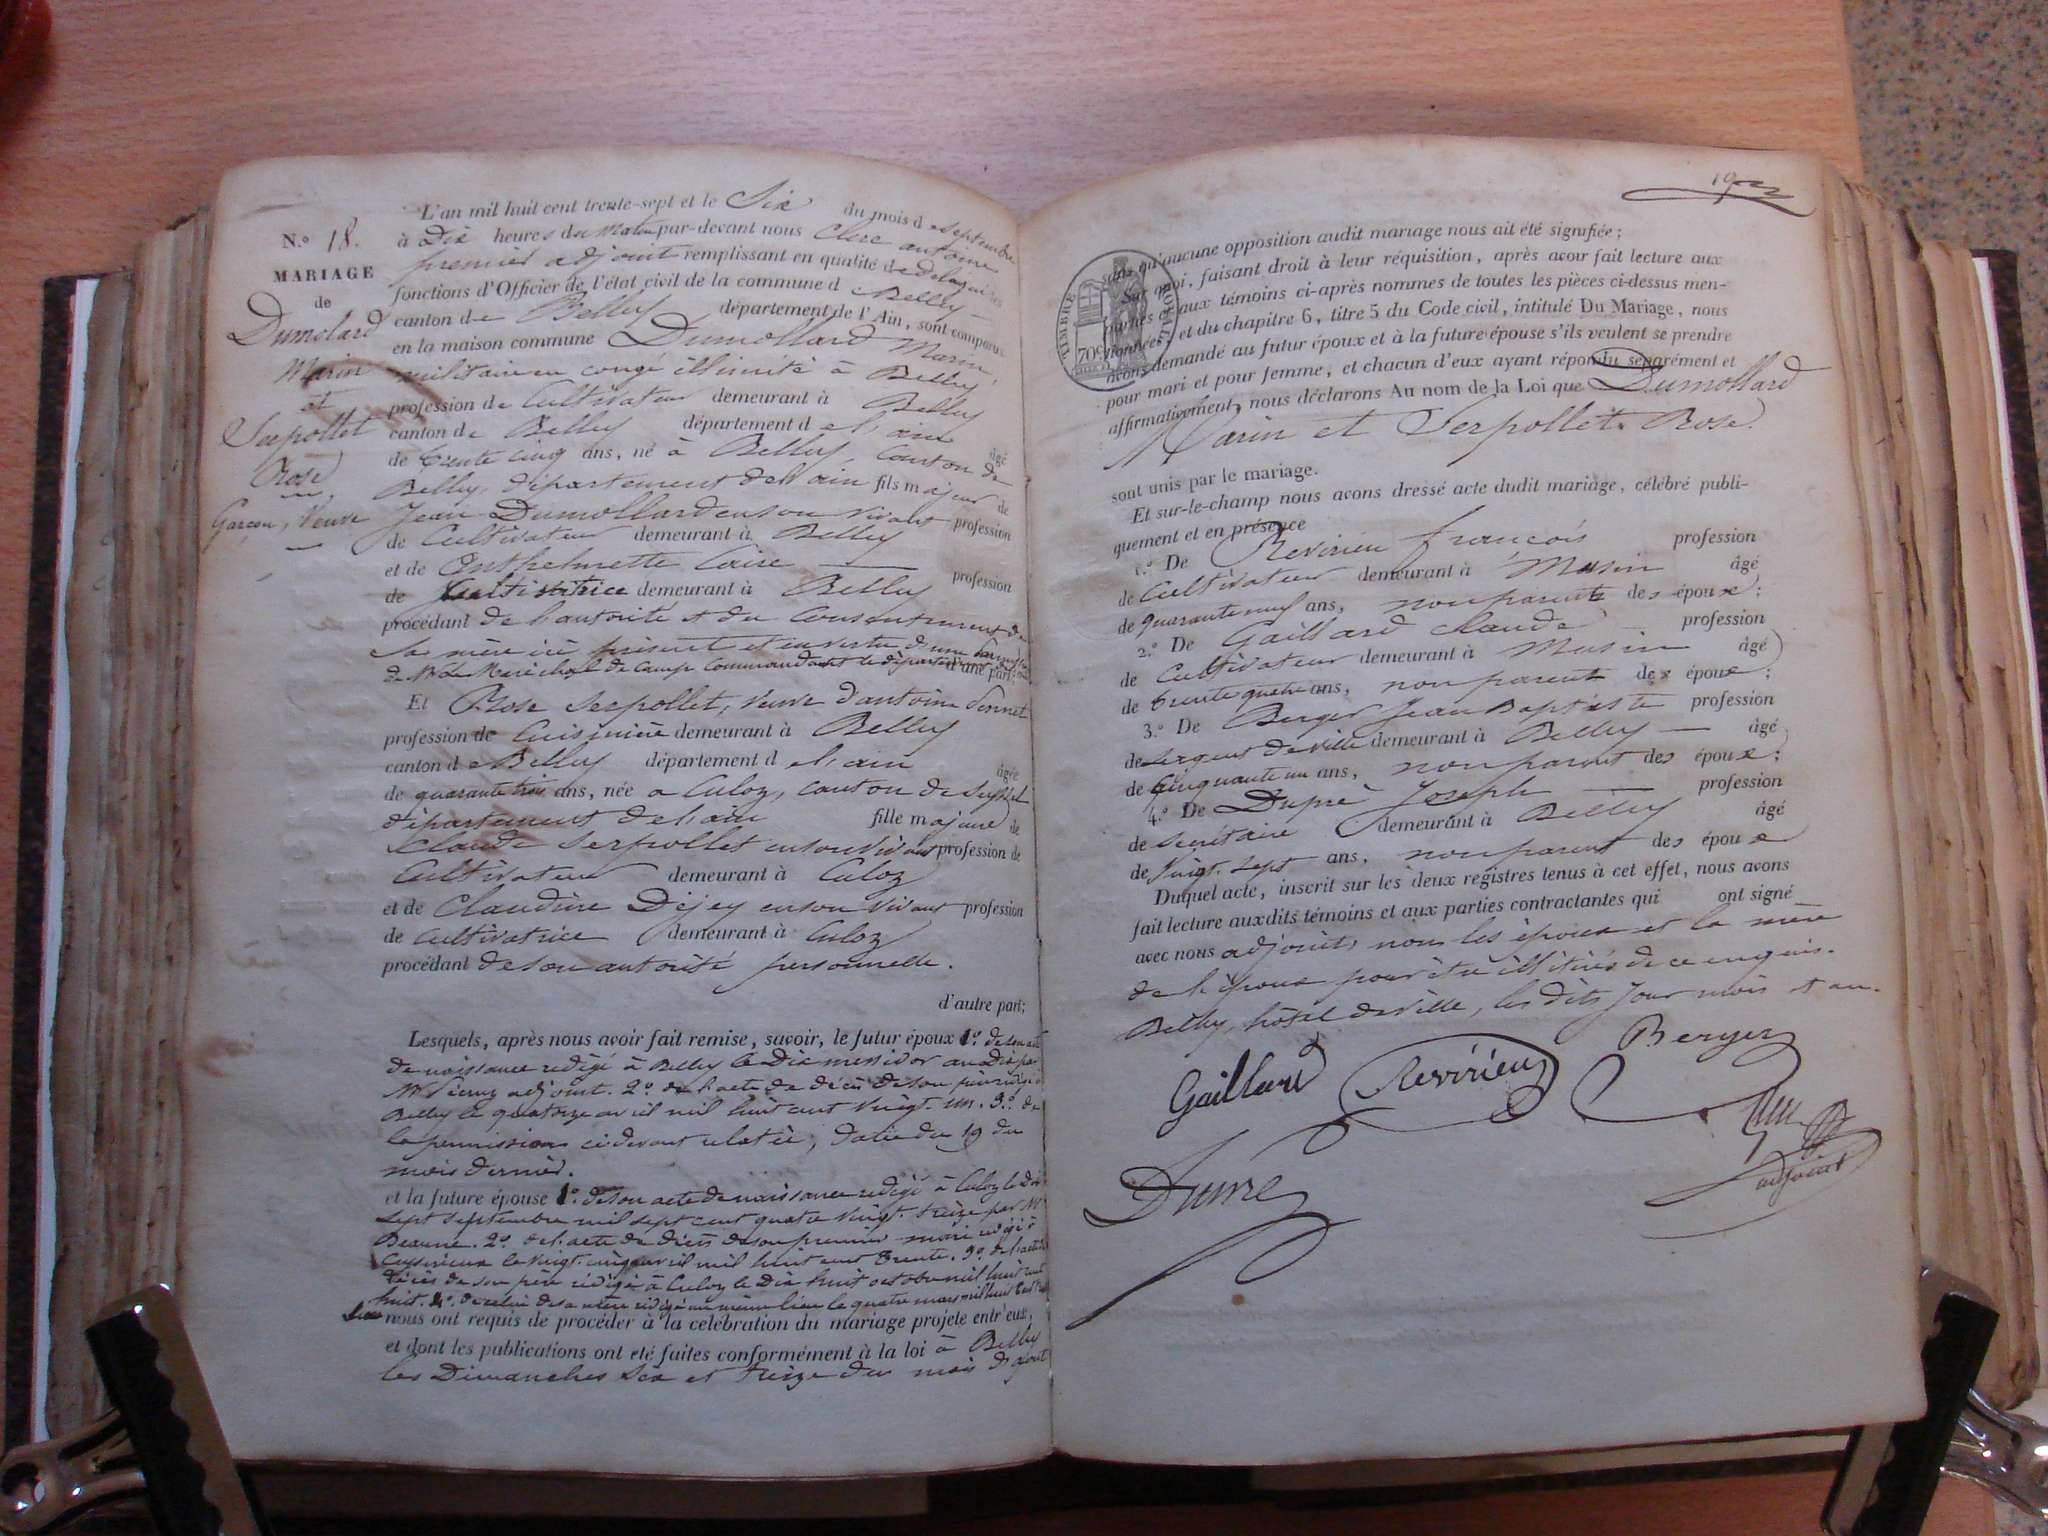 N.º 18.
MARIAGE
de
Dumolard
Marin
et
Serpollet
Rose
Garçon, Veuve
L'an mil huit cent trente-sept et le Six du mois de septembre
à Dix heures du Matin par-devant nous Clerc antoine
premier adjoint remplissant en qualité de délégué les
fonctions d'Officier de l'état civil de la commune d Belley
canton de Belley département de l'Ain, sont comparus
en la maison commune Dumollard Marin,
militaire en congé illimité à Belley
profession de Cultivateur demeurant à Belley
canton de Belley département d el'ain âgé
de trente cinq ans, né à Belley, Canton de
Belley, département del'ain fils majeur de
Jean Dumollard en son vivant profession
de Cultivateur demeurant à Belley
et de Anthelmette Caire profession
de Cultivatrice demeurant à Belley
procédant de l'autorité et du Consentement de
sa mère ici présente et en vertu d'une
de Mr le Maréchal de Camp Commandant le département d'une part;
Et Rose Serpollet, Veuve d'antoine
profession de Cuisinière demeurant à Belley
canton d eBelley département d el'ain âgée
de quarante trois ans, née a Culoz, Canton de Seyssel
département de l'ain fille majeure de
Claude Serpollet en son vivant profession de
Cultivateur demeurant à Culoz
et de Claudine Dejey en son vivant profession
de Cultivatrice demeurant à Culoz
procédant de son autorité personnelle.
d'autre part;
Lesquels, après nous avoir fait remise, savoir, le futur époux 1º. de son acte
de naissance rédigé à Belley le Dix messidor an Dix par
Mr adjoint. 2º. de l'acte de décès de son père rédigé à
Belley le quatorze avril mil huit cent vingt-un. 3º. de
la permission ci devant relatée, datée du 19 du
mois dernier.
et la future épouse 1º. de son acte de naissance rédigé à Culoz le Dix
sept septembre mil sept cent quatre vingt-treize par Mr
Beaune. 2º. de l'acte de décès de son premier mari rédigé à
le vingt-cinq avril mil huit cent trente. 3º. de l'acte de
décès de son père rédigé à Culoz le Dix huit octobre mil huit cent
huit. 4º. de celui de sa mère rédigé au même lieu le quatre mars mil huit cent
nous ont requis de procéder à la célébration du mariage projeté entr'eux,
et dont les publications ont été faites conformément à la loi à Belley
les Dimanches Six et treize du mois d'août
19
TIMBRE ROYAL
70c
sans qu'aucune opposition audit mariage nous ait été signifiée;
Sur quoi, faisant droit à leur réquisition, après avoir fait lecture aux
parties et aux témoins ci-après nommés de toutes les pièces ci-dessus men-
tionnées, et du chapitre 6, titre 5 du Code civil, intitulé Du Mariage, nous
avons demandé au futur époux et à la future épouse s'ils veulent se prendre
pour mari et pour femme, et chacun d'eux ayant répondu séparément et
affirmativement, nous déclarons Au nom de la Loi que Dumollard
Marin et Serpollet Rose.
sont unis par le mariage.
Et sur-le-champ nous avons dressé acte dudit mariage, célébré publi-
quement et en présence
1.º De Revirieu françois profession
de Cultivateur demeurant à Musin âgé
de quarante neuf ans, non parent des époux;
2.º De Gaillard Claude profession
de Cultivateur demeurant à Musin âgé
de trente quatre ans, non parent des époux;
3.º De Berger Jean Baptiste profession
de sergent de ville demeurant à Belley âgé
de Cinquante un ans, non parent des époux;
4.º De Dupré Joseph profession
de secrétaire demeurant à Belley âgé
de Vingt-sept ans, non parent des époux
Duquel acte, inscrit sur les deux registres tenus à cet effet, nous avons
fait lecture auxdits témoins et aux parties contractantes qui ont signé
avec nous adjoint, non les époux et la mère
de l'époux pour être illitérés de ce enquis.
Belley, hôtel de ville, les dits jour mois et an.
Gaillard Revirieu Berger
Dupré
adjoint